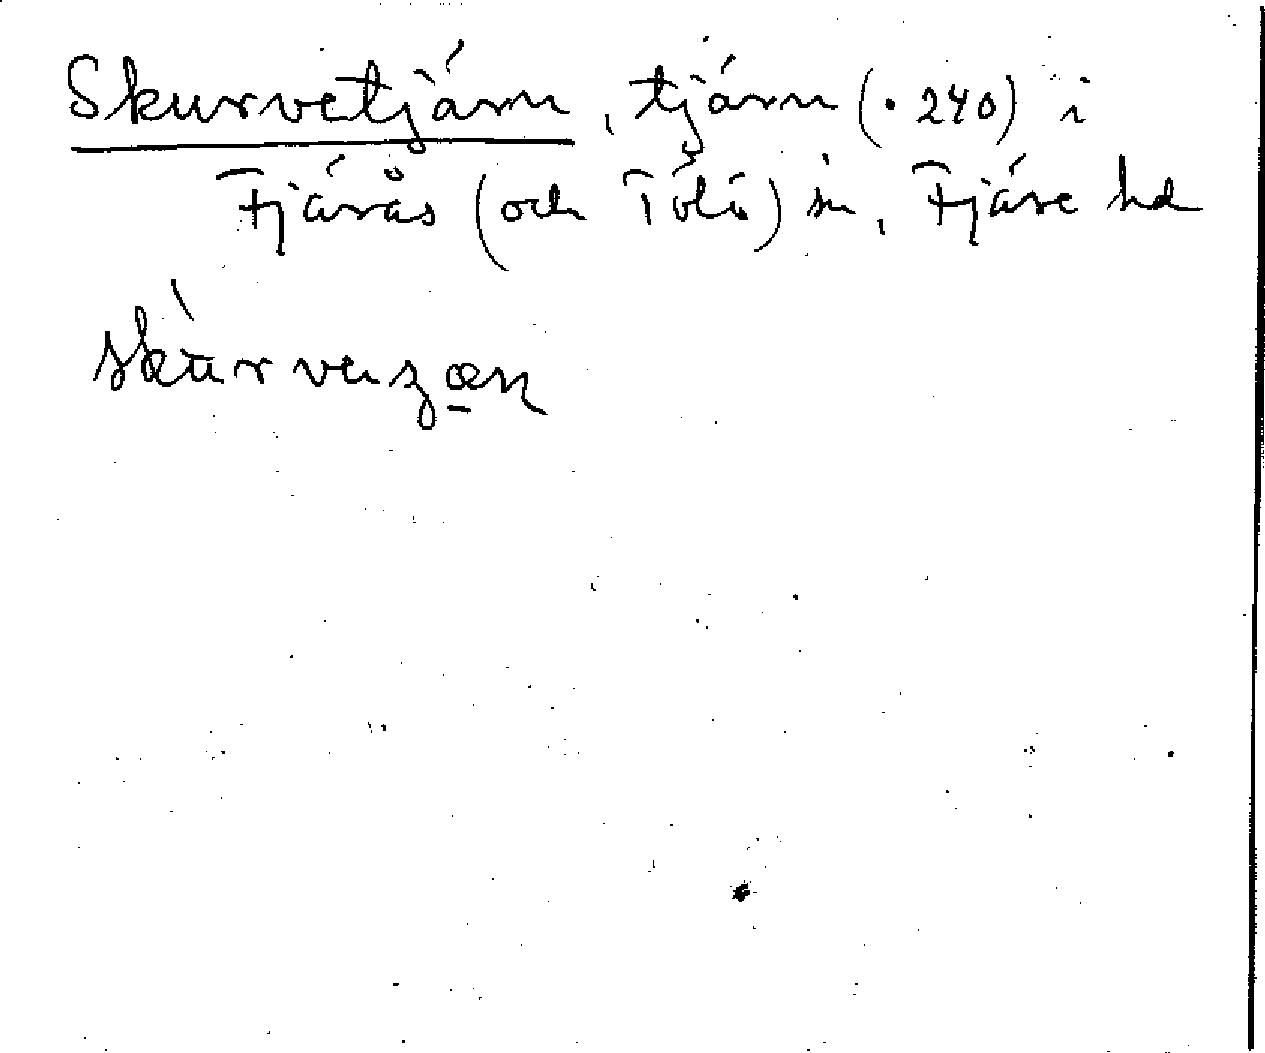 Skurvetjärn, tjärn (· 240) i
Fjärås (och Tölö) sn, Fjäre hd